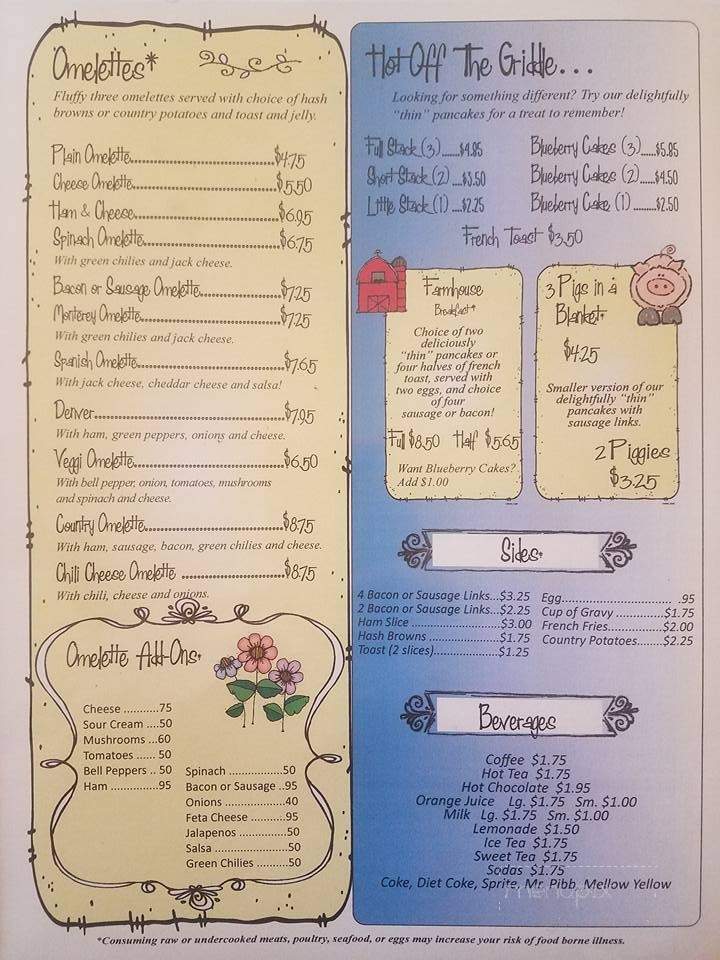 Omelettes*
Fluffy three omelettes served with choice of hash
browns or country potatoes and toast and jelly.
Plain Omelette..............................$4.75
Cheese Omelette..............................$5.50
Ham & Cheese..............................$6.95
Spinach Omelette..............................$6.75
With green chilies and jack cheese.
Bacon or Sausage Omelette....................$7.25
Monterey Omelette..............................$7.25
With green chilies and jack cheese.
Spanish Omelette..............................$7.65
With jack cheese, cheddar cheese and salsa!
Denver..............................$7.95
With ham, green peppers, onions and cheese.
Veggi Omelette..............................$6.50
With bell pepper, onion, tomatoes, mushrooms
and spinach and cheese.
Country Omelette..............................$8.75
With ham, sausage, bacon, green chilies and cheese.
Chili Cheese Omelette ....................$8.75
With chili, cheese and onions.
Omelette Add-Ons*
Cheese ...........75
Sour Cream ....50
Mushrooms ...60
Tomatoes ...... 50
Bell Peppers .. 50
Ham ..............95
Spinach ................50
Bacon or Sausage ..95
Onions .................40
Feta Cheese ..........95
Jalapenos ..............50
Salsa .....................50
Green Chilies .........50
Hot Off The Griddle...
Looking for something different? Try our delightfully
"thin" pancakes for a treat to remember!
Full Stack (3) ......$4.85 Blueberry Cakes (3) .....$5.85
Short Stack (2) ....$3.50 Blueberry Cakes (2) .....$4.50
Little Stack (1) ....$2.25 Blueberry Cake (1) .......$2.50
French Toast $3.50
Farmhouse
Breakfast*
Choice of two
deliciously
"thin" pancakes or
four halves of french
toast, served with
two eggs, and choice
of four
sausage or bacon!
Full $8.50 Half $5.65
Want Blueberry Cakes?
Add $1.00
3 Pigs in a
Blanket*
$4.25
Smaller version of our
delightfully "thin"
pancakes with
sausage links.
2 Piggies
$3.25
Sides*
4 Bacon or Sausage Links...$3.25
2 Bacon or Sausage Links...$2.25
Ham Slice ............................$3.00
Hash Browns .......................$1.75
Toast (2 slices)......................$1.25
Egg.............................. .95
Cup of Gravy ............$1.75
French Fries.............$2.00
Country Potatoes.......$2.25
Beverages
Coffee $1.75
Hot Tea $1.75
Hot Chocolate $1.95
Orange Juice Lg. $1.75 Sm. $1.00
Milk Lg. $1.75 Sm. $1.00
Lemonade $1.50
Ice Tea $1.75
Sweet Tea $1.75
Sodas $1.75
Coke, Diet Coke, Sprite, Mr. Pibb, Mellow Yellow
menupix
*Consuming raw or undercooked meats, poultry, seafood, or eggs may increase your risk of food borne illness.